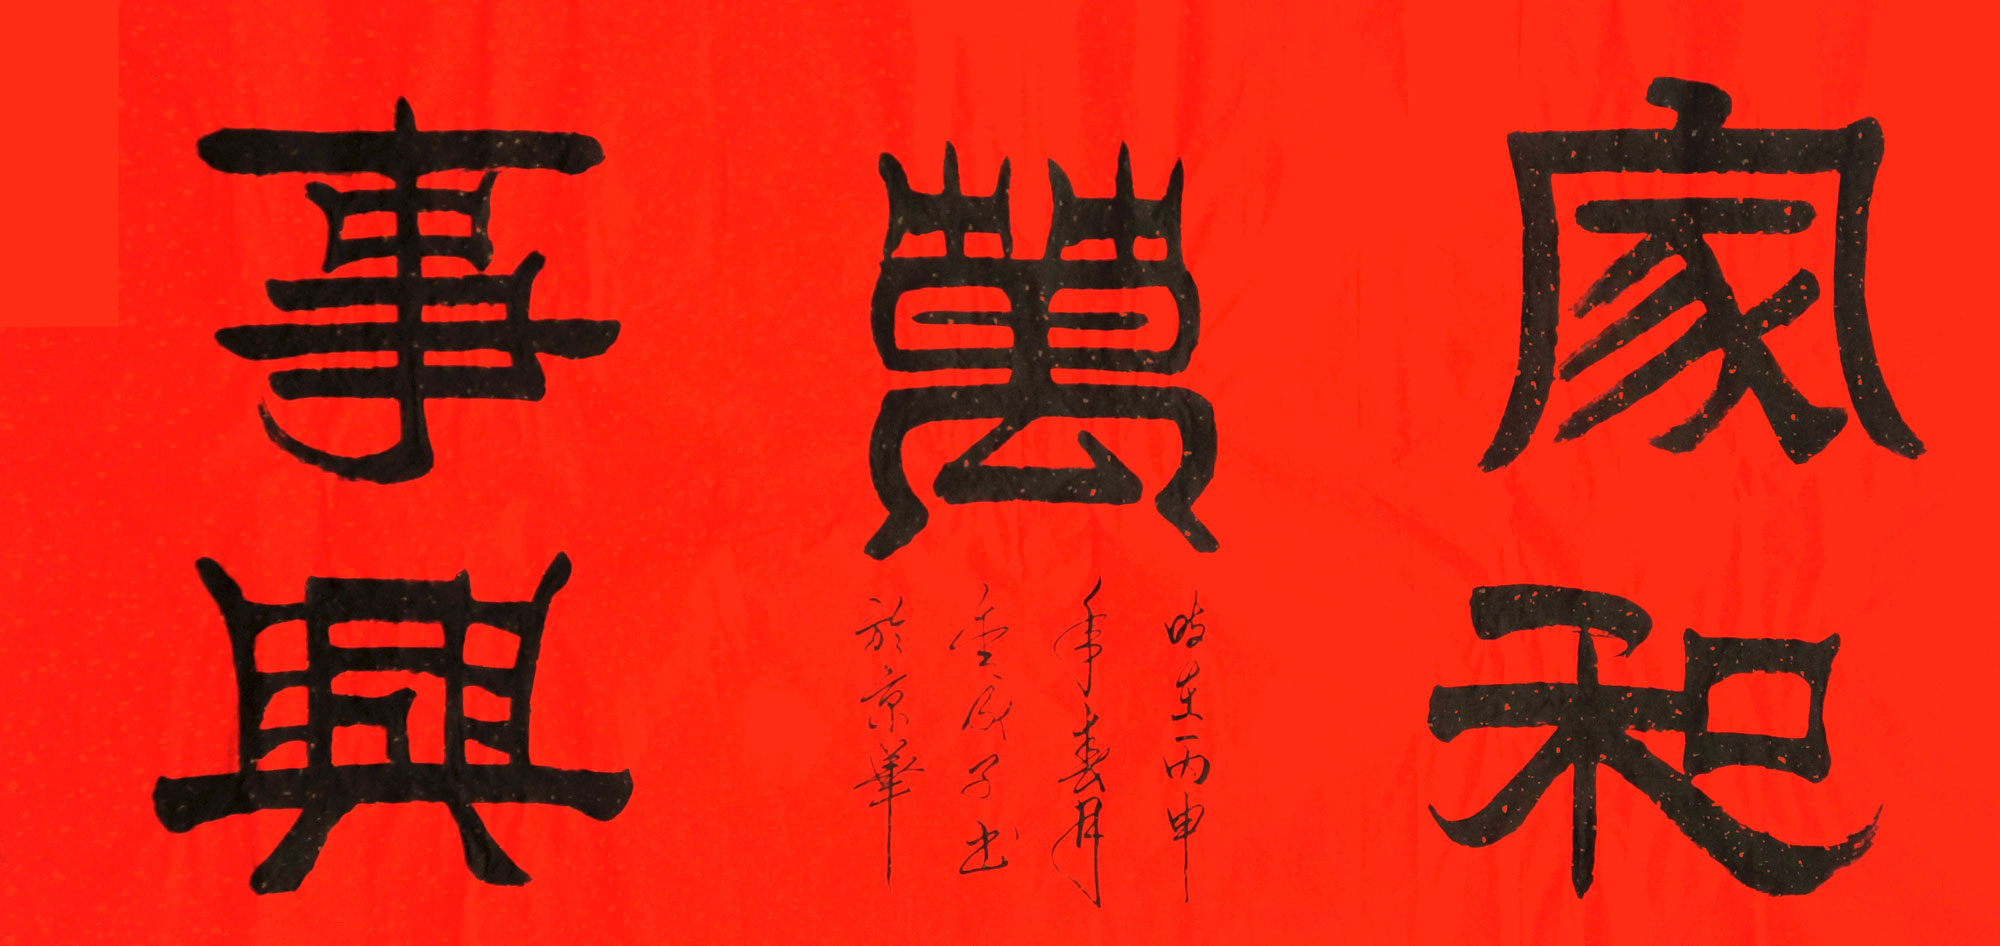 家和
萬
事興
時在丙申
年春月
金成子書
於京華